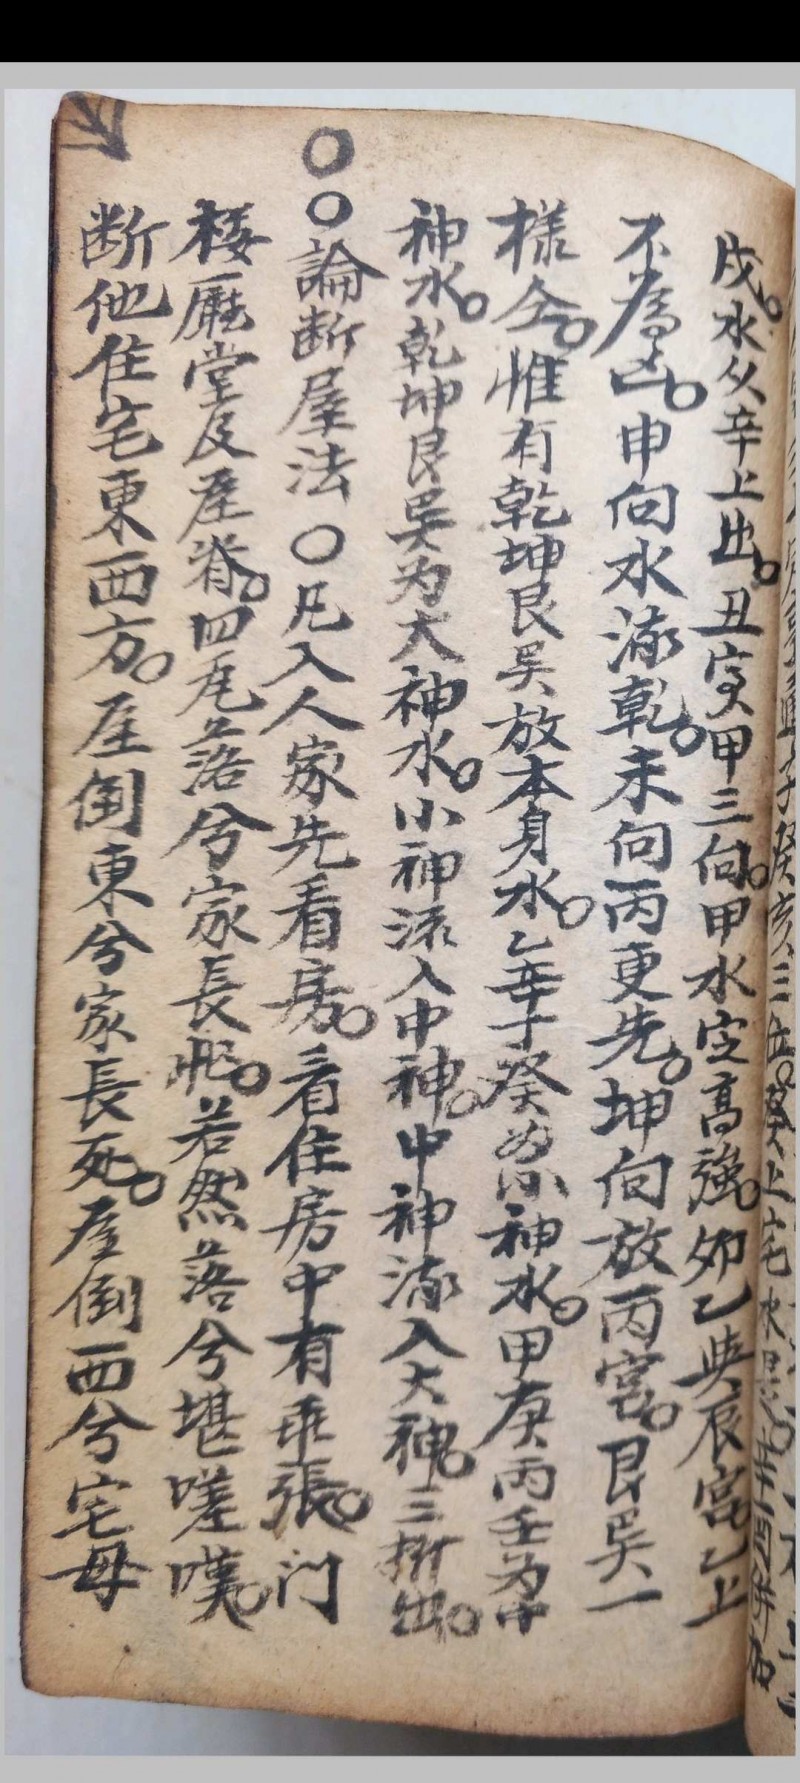 戌。水从辛上出。丑寅甲三向。甲水定高強。卯乙與辰宮。乙上
不為凶。申向水流乾。未向丙更先。坤向放丙宮。艮巽一
樣仝。惟有乾坤艮巽放本身水。乙辛丁癸為小神水。甲庚丙壬為中
神水。乾坤艮巽为大神水。小神流入中神。中神流入大神。三折出。
〇〇論断屋法〇凡入人家先看房。看住房中有乖張。门
楼廰堂及屋脊。四尾落兮家長 。若然落兮堪嗟嘆。
断他住宅東西方。屋倒東兮家長死。屋倒西兮宅母